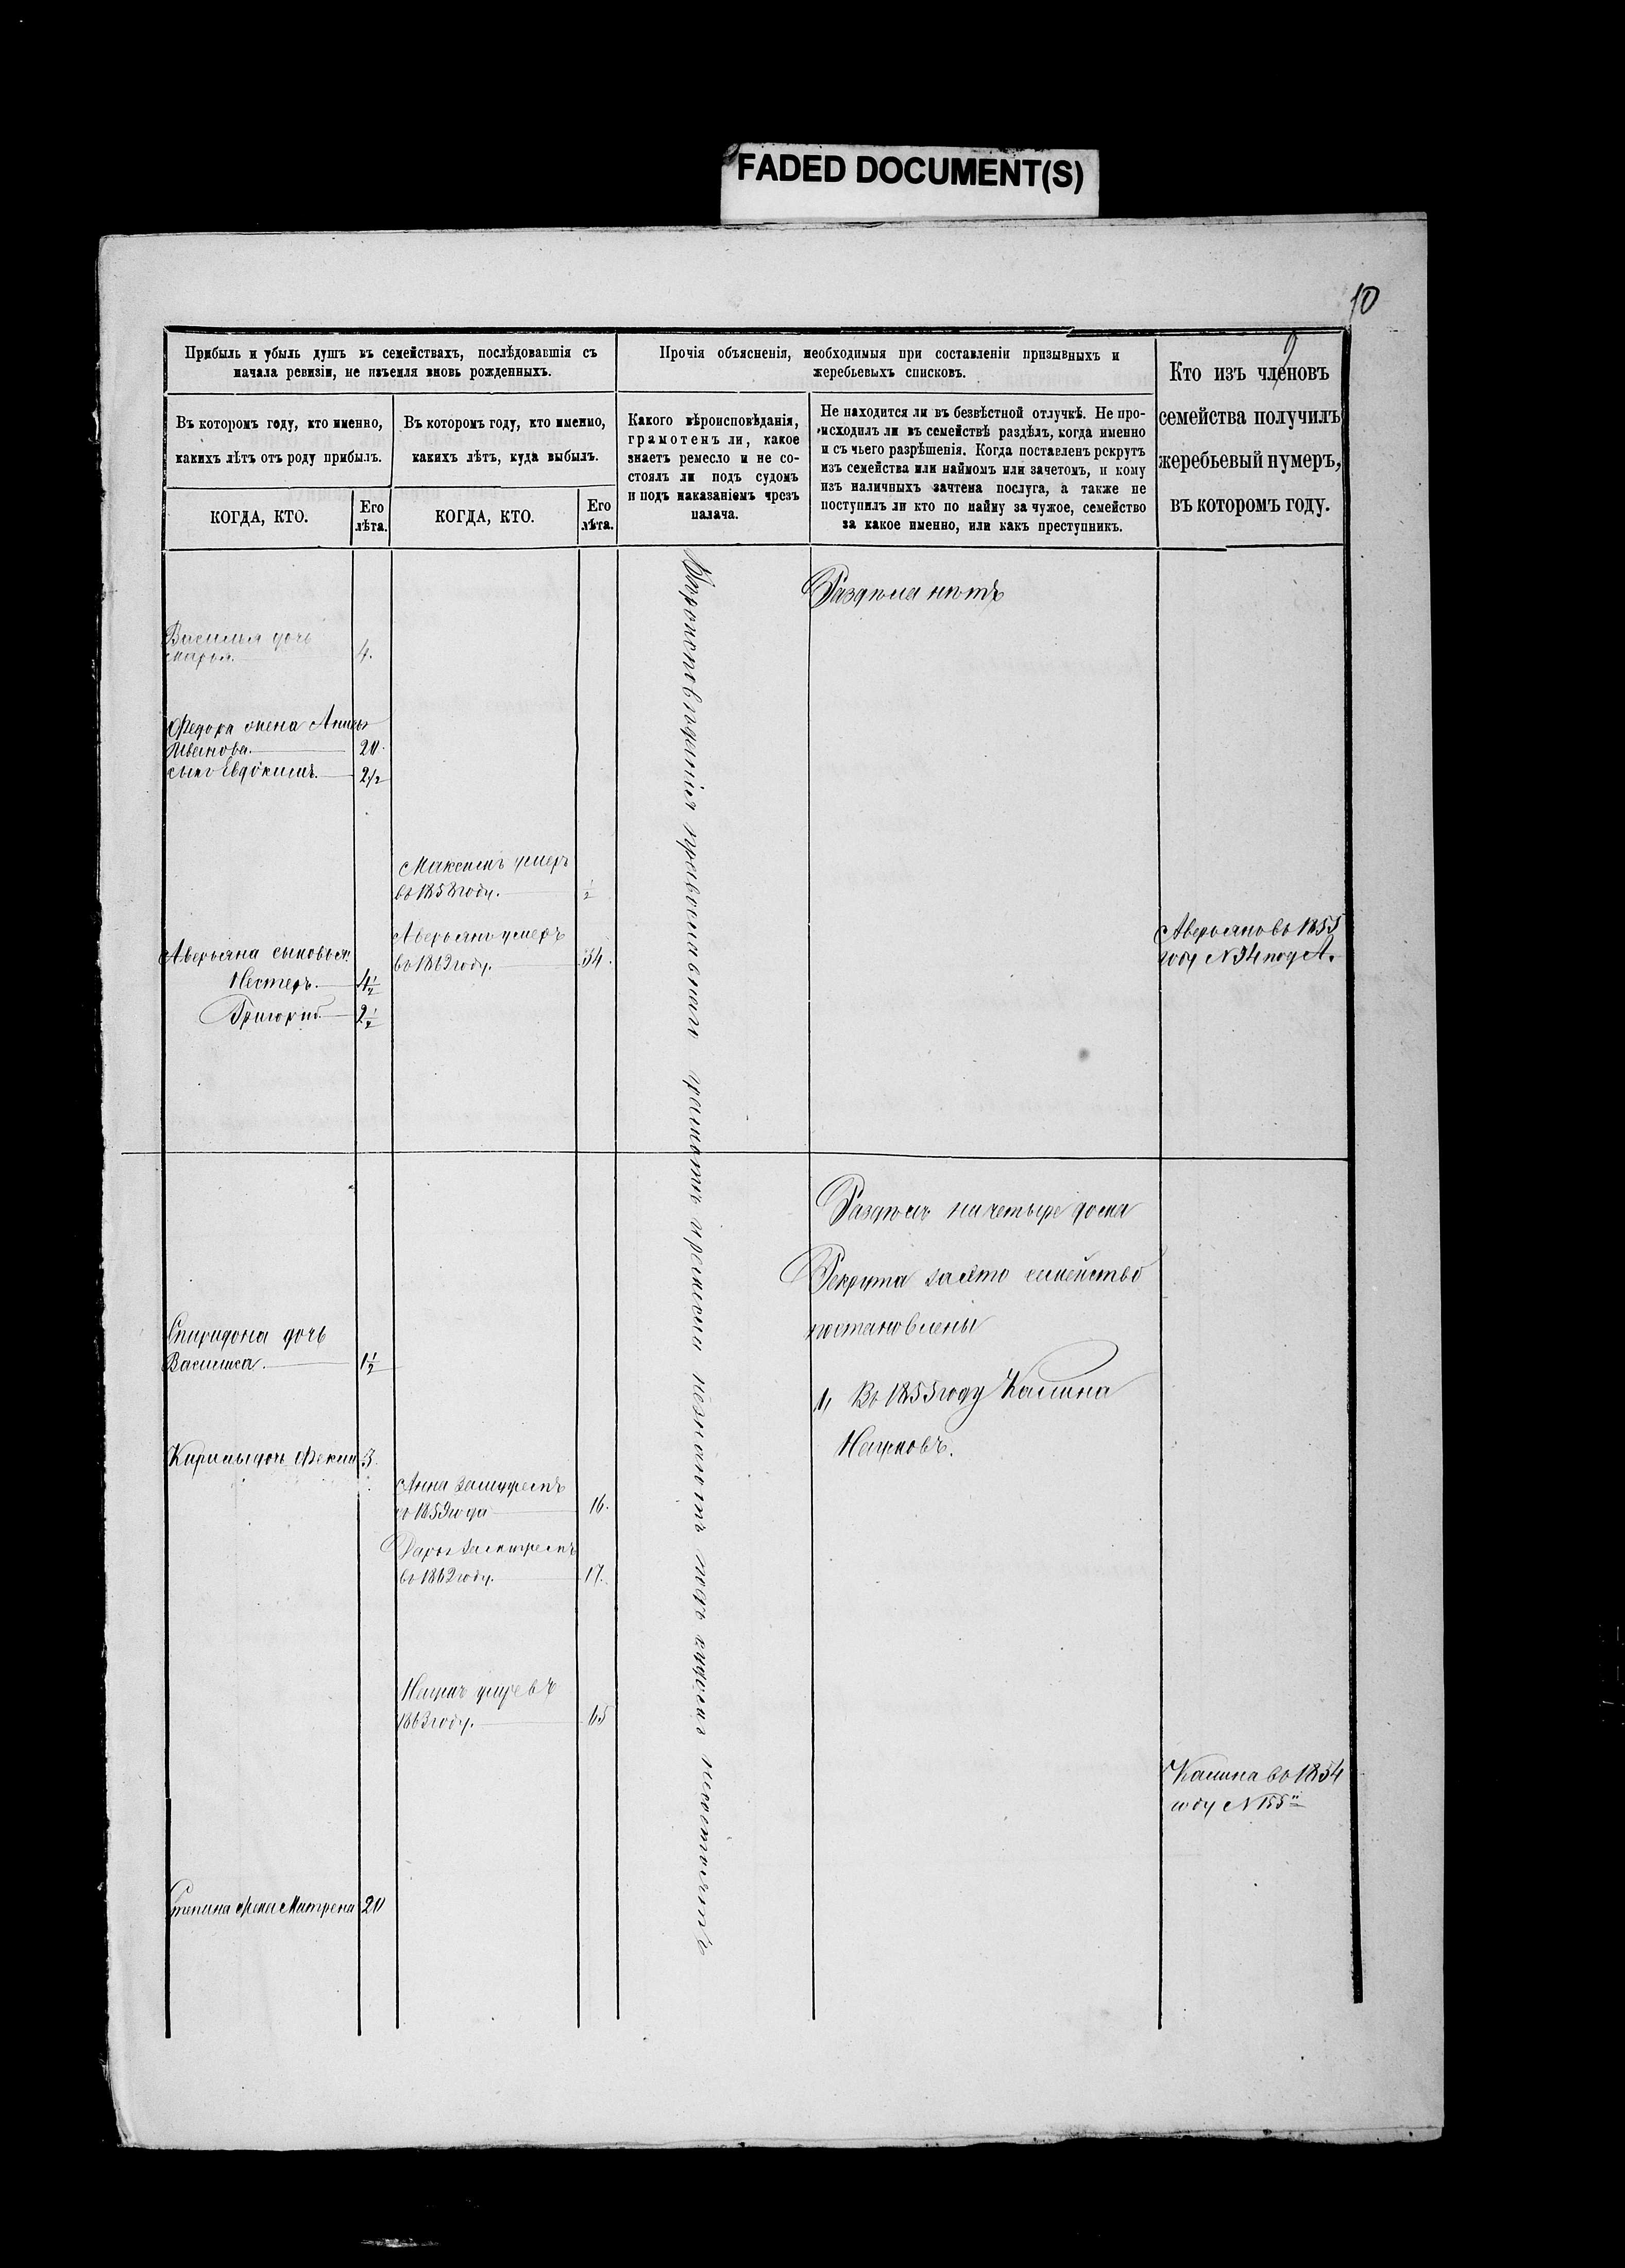 FADED DOCUMENT(S)
10
9
Прибыль и убыль душъ въ семействахъ, послѣдовавшія съ
начала ревизіи, не изъемля вновь рожденныхъ.
Въ которомъ году, кто именно,
какихъ лѣтъ отъ роду прибылъ.
КОГДА, КТО.
Его
лѣта.
Въ которомъ году, кто именно,
какихъ лѣтъ, куда выбылъ.
КОГДА, КТО.
Его
лѣта.
Прочія объясненія, необходимыя при составленіи призывныхъ и
жеребьевыхъ списковъ.
Какого вѣроисповѣданія,
грамотенъ ли, какое
знаетъ ремесло и не со-
стоялъ ли подъ судомъ
и подъ наказаніемъ чрезъ
палача.
Не находится ли въ безвѣстной отлучкѣ. Не про-
исходилъ ли въ семействѣ раздѣлъ, когда именно
и съ чьего разрѣшенія. Когда поставленъ рекрутъ
изъ семейства или наймомъ или зачетомъ, и кому
изъ наличныхъ зачтена послуга, а также не
поступилъ ли кто по найму за чужое, семейство
за какое именно, или какъ преступникъ.
Кто изъ членовъ
семейства получилъ
жеребьевый нумеръ,
въ которомъ году.
Раздѣла нѣтъ
Василья дочь
Марья. 4.
Федора жена Анна
Иванова. 20.
сынъ Евдокимъ. 2 1/2
Максимъ умеръ
въ 1858 году. 1/2
Аверьянъ умеръ
въ 1862 году. 34.
Аверьяна сыновья
Нестеръ. 4 1/2
Григорій. 2 1/2
Аверьянъ въ 1855
году N 34 под А.
Вѣроисповѣданія православнаго грамоты и ремесла незнаютъ подъ судомъ несостоятъ
Раздѣлъ на четыре дома
Рекрута за это семейство
постановлены
1, Въ 1855 году Калина
Наумовъ.
Спиридона дочь
Василиса. 1 1/2
Кирилы дочь Фекла 3.
Анна замужемъ
съ 1859 года 16.
Дарья замужемъ
въ 1862 году. 17.
Наумъ умре въ
1863 году. 65
Калина въ 1854
году N 155
Степана жена Матрена 20